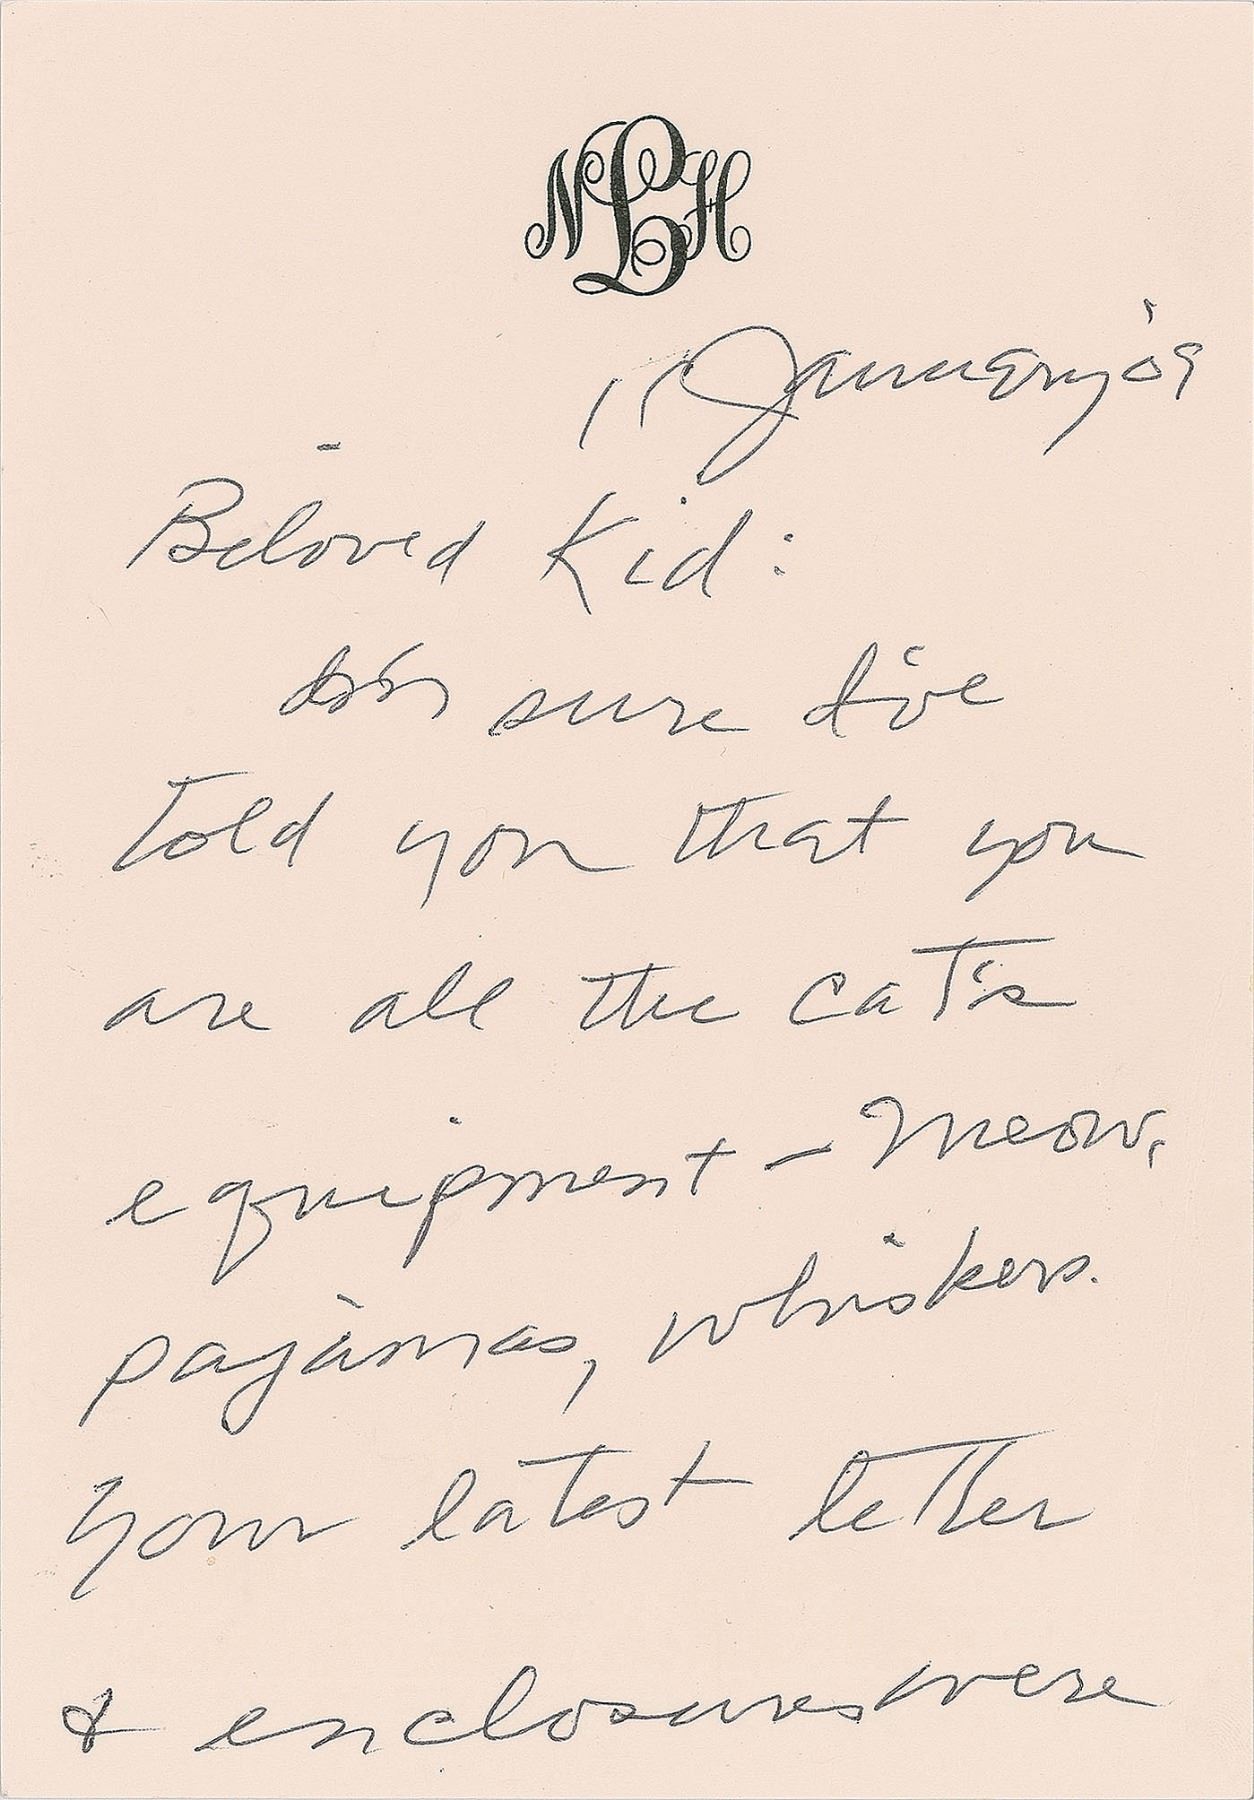 NLH
11 January '09
Beloved Kid:
I'm sure I've
told you that you
are all the cat's
equipment - Meow,
pajamas, whiskers.
Your latest letter
& enclosures were